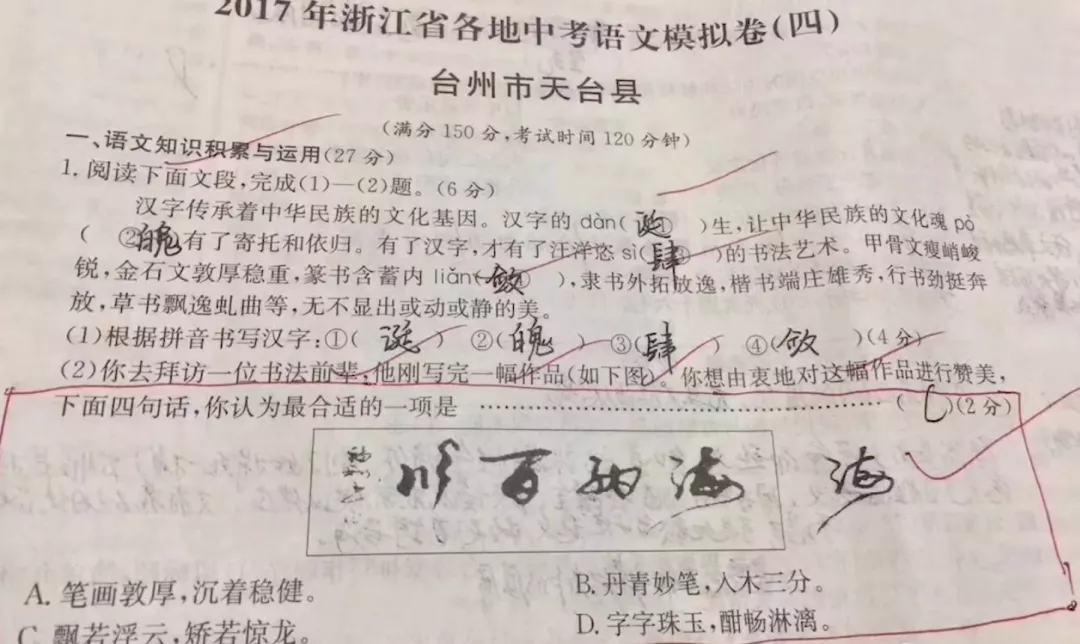 2017年浙江省各地中考语文模拟卷(四)
台州市天台县
(满分150分,考试时间120分钟)
一、语文知识积累与运用(27分)
1. 阅读下面文段,完成(1)—(2)题。(6分)
汉字传承着中华民族的文化基因。汉字的dàn(诞①)生,让中华民族的文化魂pò
(②魄)有了寄托和依归。有了汉字,才有了汪洋恣sì(肆③)的书法艺术。甲骨文瘦峭峻
锐,金石文敦厚稳重,篆书含蓄内liǎn(敛④),隶书外拓放逸,楷书端庄雄秀,行书劲挺奔
放,草书飘逸虬曲等,无不显出或动或静的美。
(1)根据拼音书写汉字:①(诞)②(魄)③(肆)④(敛)(4分)
(2)你去拜访一位书法前辈,他刚写完一幅作品(如下图)。你想由衷地对这幅作品进行赞美,
下面四句话,你认为最合适的一项是………………………………(C)(2分)
川百纳海 海
A. 笔画敦厚,沉着稳健。
B. 丹青妙笔,入木三分。
C. 飘若浮云,矫若惊龙。
D. 字字珠玉,酣畅淋漓。